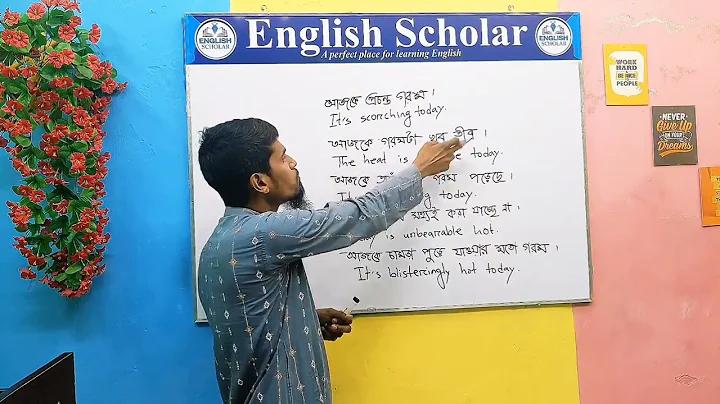 ENGLISH SCHOLAR
English Scholar
A perfect place for learning English
ENGLISH SCHOLAR
আজকে প্রচন্ড গরম।
It's scorching today.
আজকে গরমটা খুব তীব্র।
The heat is today.
আজকে গরম পড়েছে।
today.
সহ্যই করা যাচ্ছে না।
is unbearable hot.
আজকে চামড়া পুড়ে যাওয়ার মতো গরম।
It's blisteringly hot today.
WORK
HARD
BE NICE TO
PEOPLE
NEVER
Give Up
ON YOUR
Dreams